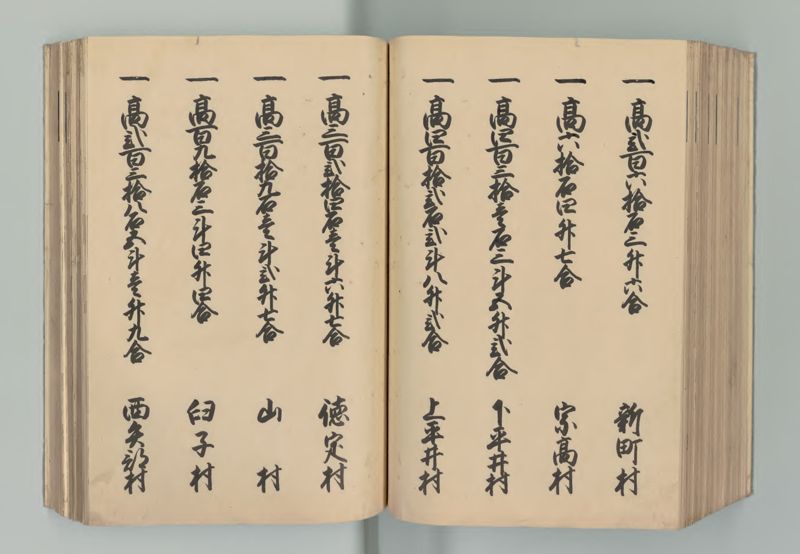 一 高弐百六拾石三升六合 新町村
一 高六拾石四升七合 宗高村
一 高四百三拾壱石三斗五升弐合 下平井村
一 高四百拾弐石弐斗八升弐合 上平井村
一 高三百弐拾四石壱斗六升七合 徳定村
一 高三百拾九石壱斗弐升七合 山村
一 高百九拾石三斗四升四合 臼子村
一 高弐百三拾八石五斗壱升九合 西矢部村